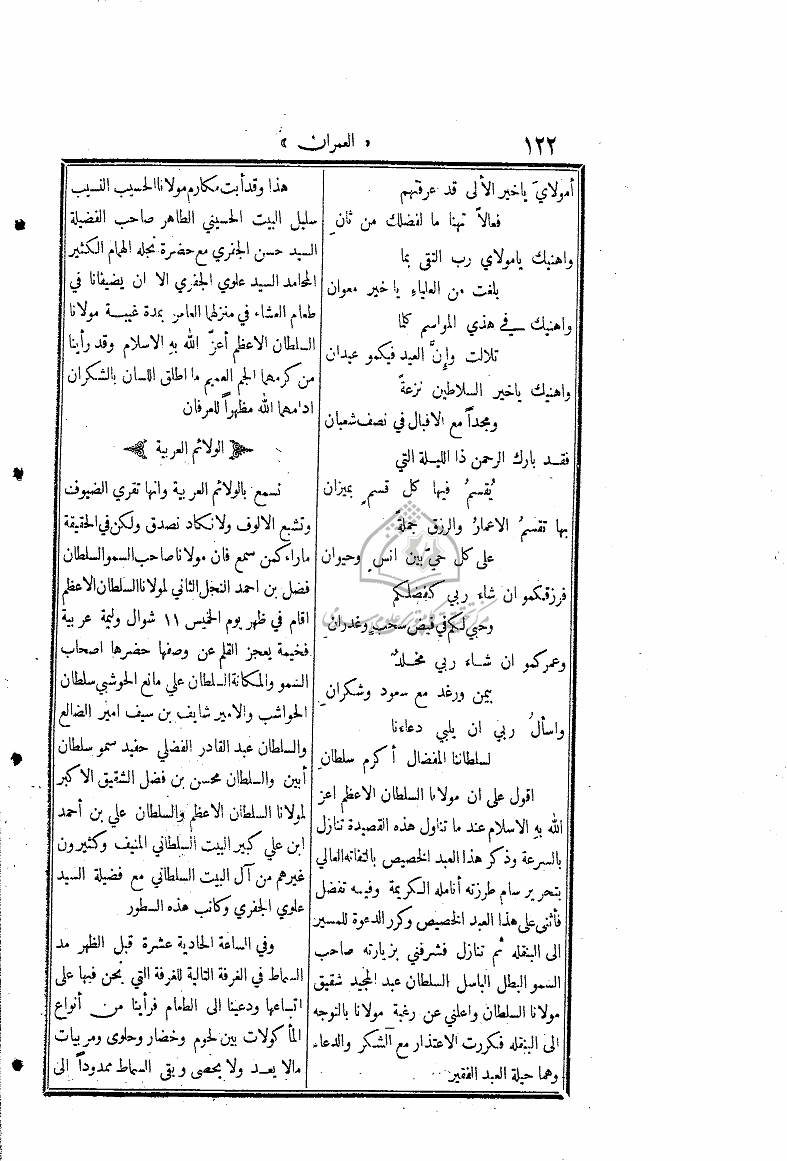 ١٢٢
« العمران »
أمولايَ ياخير الألى قد عرفتهم
فعالاً تهنا ما لفضلك من ثانِ
واهنيك يامولاي رب التقى بما
بلغت من العلياء يا خير معوان
واهنيك في هذي المواسم كلما
تلالت وإِنَّ العيد فيكمو عيدان
واهنيك ياخير السلاطين نزعةً
ومجداً مع الاقبال في نصف شعبان
فقد بارك الرحمن ذا الليلة التي
يُقسمُ فيها كل قسمٍ بميزان
بها تقسمُ الاعمارُ والرزق جملةً
على كل حيٍّ بين انسٍ وحيوان
فرزقكمو ان شاء ربي كفضلكم
وحبي لكم في فيض سحبٍ وغدرانِ
وعمركمو ان شاء ربي مخلدٌ
بيمن ورغد مع سعود وشكرانِ
واسألُ ربي ان يلبي دعاءنا
لسلطاننا المفضال أكرم سلطانِ
اقول على ان مولانا السلطان الاعظم اعز
الله بهِ الاسلام عند ما تناول هذه القصيدة تنازل
بالسرعة وذكر هذا العبد الخصيص بالتفاته العالي
بتحرير سام طرزته أنامله الكريمة وفيه تفضل
فأثنى على هذا العبد الخصيص وكرر الدعوة للمسير
الى البنقله ثم تنازل فشرفني بزيارته صاحب
السمو البطل الباسل السلطان عبد المجيد شقيق
مولانا السلطان واعلني عن رغبة مولانا بالتوجه
الى البنقله فكررت الاعتذار مع الشكر والدعاء
وهما حيلة العبد الفقير
هذا وقد أبت مكارم مولانا الحسيب النسيب
سليل البيت الحسيني الطاهر صاحب الفضيلة
السيد حسن الجفري مع حضرة نجله الهمام الكثير
المحامد السيد علوي الجفري الا ان يضيفانا في
طعام العشاء في منزلهما العامر بمدة غيبة مولانا
السلطان الاعظم أعزّ الله بهِ الاسلام وقد رأينا
من كرمهما الجم العميم ما اطلق اللسان بالشكران
ادامهما الله مظهراً للعرفان
الولائم العربية
نسمع بالولائم العربية وانها تقري الضيوف
وتشبع الالوف ولا نكاد نصدق ولكن في الحقيقة
ماراء كمن سمع فان مولانا صاحب السمو السلطان
فضل بن احمد النجل الثاني لمولانا السلطان الاعظم
اقام في ظهر يوم الخميس ١١ شوال وليمة عربية
فخيمة يعجز القلم عن وصفها حضرها اصحاب
السمو والمكانة السلطان علي مانع الحوشبي سلطان
الحواشب والامير شايف بن سيف امير الضالع
والسلطان عبد القادر الفضلي حفيد سمو سلطان
أبين والسلطان محسن بن فضل الشقيق الاكبر
لمولانا السلطان الاعظم والسلطان علي بن أحمد
ابن علي كبير البيت السلطاني المنيف وكثيرون
غيرهم من آل البيت السلطاني مع فضيلة السيد
علوي الجفري وكاتب هذه السطور
وفي الساعة الحادية عشرة قبل الظهر مد
السماط في الغرفة التالية للغرفة التي نحن فيها على
اتساعها ودعينا الى الطعام فرأينا من أنواع
المأكولات بين لحوم وخضار وحلوى ومربيات
مالا يعد ولا يحصى وبقى السماط ممدوداً الى